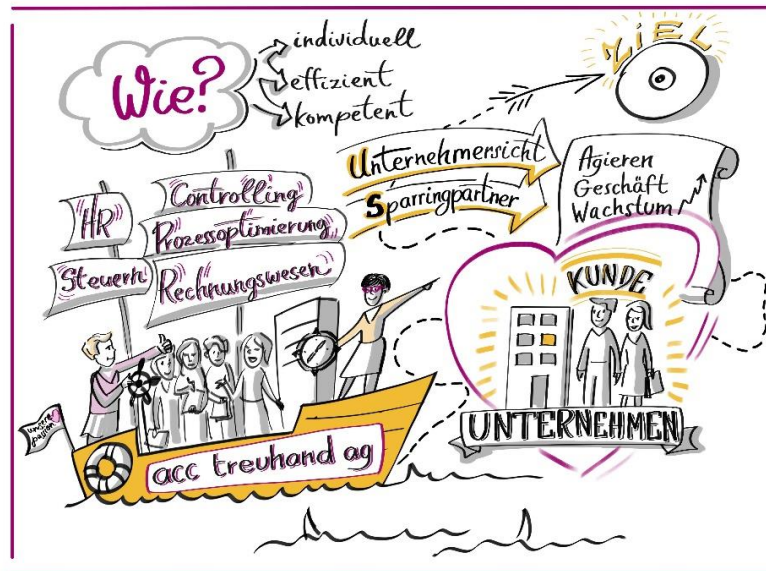 Wie?
individuell
effizient
kompetent
ZIEL
Unternehmersicht
Sparringpartner
Agieren
Geschäft
Wachstum
HR
Steuern
Controlling
Prozessoptimierung
Rechnungswesen
KUNDE
UNTERNEHMEN
unsere
passion
acc treuhand ag